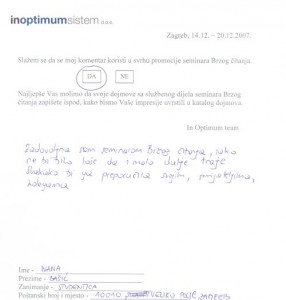 inoptimumsistem d.o.o.
Zagreb, 14.12. – 20.12.2007.
Slažem se da se moj komentar koristi u svrhu promocije seminara Brzog čitanja.
DA NE
Najljepše Vas molimo da svoje dojmove sa službenog dijela seminara Brzog
čitanja zapišete ispod, kako bismo Vaše impresije uvrstili u katalog dojmova.
In Optimum team
Zadovoljna sam seminarom Brzog čitanja, iako
ne bi bilo loše da i malo dulje traje.
Svakako bi ga preporučila svojim prijateljima,
kolegama
Ime - NANA
Prezime - BAŠIĆ
Zanimanje - STUDENTICA
Poštanski broj i mjesto - 10010 VELIKO POLJE ZAGREB